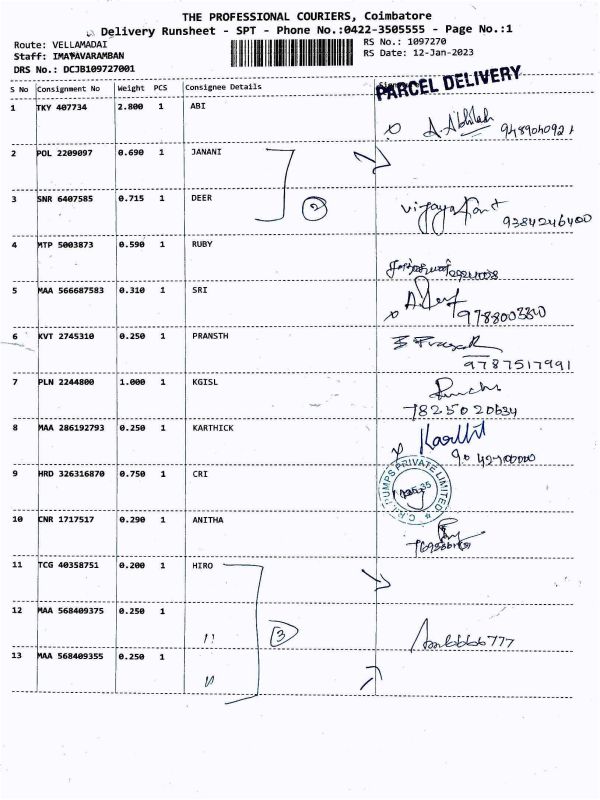 THE PROFESSIONAL COURIERS, Coimbatore
Delivery Runsheet - SPT - Phone No.:0422-3505555 - Page No.:1
Route: VELLAMADAI RS No.: 1097270
Staff: IMAYAVARAMBAN RS Date: 12-Jan-2023
DRS No.: DCJB109727001
PARCEL DELIVERY
S No Consignment No Weight PCS Consignee Details
1 TKY 407734 2.800 1 ABI
A. Abhilash 9489040921
2 POL 2209097 0.690 1 JANANI
3 SNR 6407585 0.715 1 DEER
2 Vijayakant
9384246400
4 MTP 5003873 0.590 1 RUBY
5 MAA 566687583 0.310 1 SRI
9788003810
6 KVT 2745310 0.250 1 PRANSTH
9787517991
7 PLN 2244800 1.000 1 KGISL
7825020634
8 MAA 286192793 0.250 1 KARTHICK
Karthik
9 HRD 326316870 0.750 1 CRI
C.R.I. PUMPS PRIVATE LIMITED
10 CNR 1717517 0.290 1 ANITHA
11 TCG 40358751 0.200 1 HIRO
12 MAA 568409375 0.250 1
" 3
13 MAA 568409355 0.250 1
"